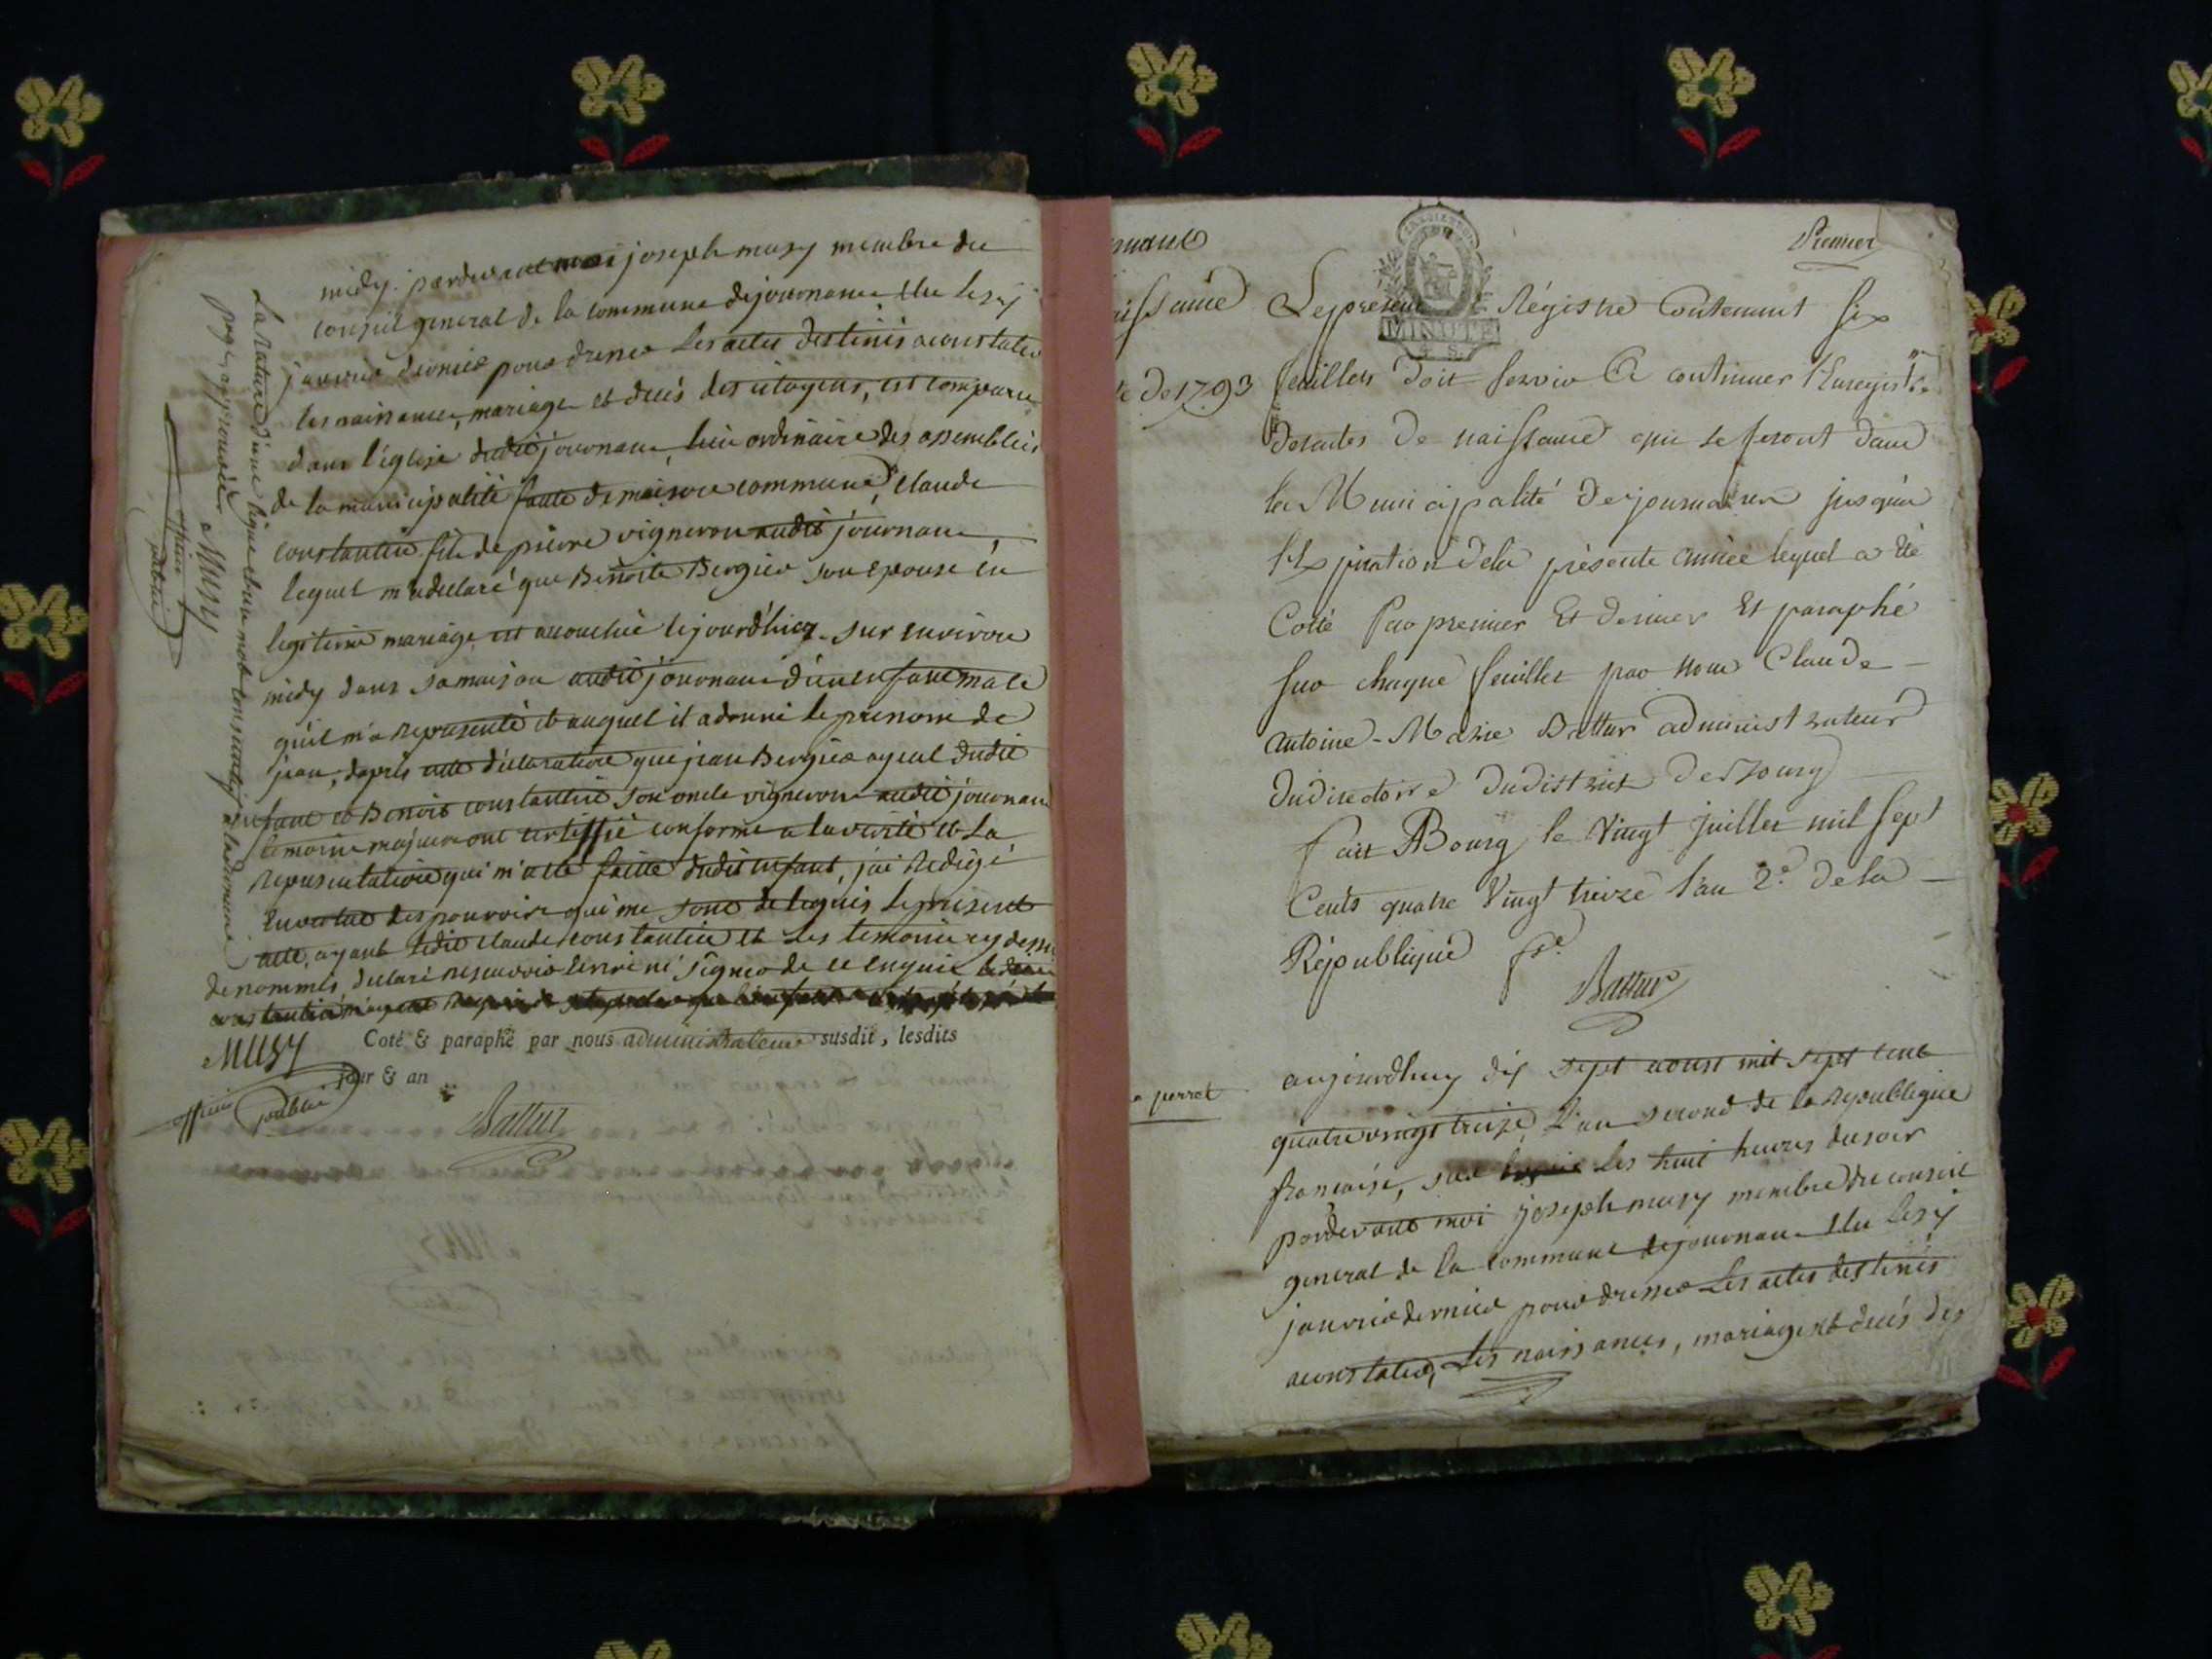 midy. pardevant moi joseph musy membre du
conseil general de la commune dejournans elu le
janvier dernier pour dresser les actes destinés a constater
les naissances, mariages et decés des citoyens, est comparu
dans l'église dudit journans, lieu ordinaire des assemblées
de la municipalité faute de maison commune, claude
constantin fils de pierre vigneron audit journans,
lequel m'a declaré que Benoite Bergier son epouse en
legitime mariage est accouchée lejourd'hier sur environ
midy dans sa maison audit journans d'un enfant male
qu'il m'a representé et auquel il a donné le prenom de
jean, daprès cette déclaration que jean Bergier ayeul dudit
enfant et Benoit constantin son oncle vigneron audit journans
temoins majeurs ont certiffié conforme a la verité et la
representation qui m'a eté faitte dudit enfant, j'ai redigé
en vertue des pouvoirs qui me sont delegués le present
acte, ayant ledit claude constantin et les temoins cy dessus
denommés, declaré ne scavoir ecrire ni signer de ce enquis
constantin
MUSY
officier public
Coté & paraphé par nous administrateur susdit, lesdits
jour & an
Battur
La rature d'une ligne et un mot
page approuvée
MUSY
officier
public
Premier
MINUTE
4 S.
de 1793
Le present Régistre Contenant six
feuillets doit servir A continuer l'Enregistr.
desactes de naissance qui se feront dans
la Municipalité dejournans jusqu'a
l'Expiration dela présente année lequel a été
Cotté par premier Et dernier Et paraphé
sur chaque feuillet par nous Claude
antoine-Marie Battur administrateur
dudirectoire dudistrict de Bourg
fait ABourg le Vingt juillet mil sept
Cents quatre Vingt treize l'an 2e. dela
République fse.
Battur
perret
aujourdhuy dix sept aoust mil sept cent
quatrevingt treize, L'an second de la republique
francaise, sur les huit heures dusoir
pardevant moi joseph musy membre du conseil
general de la commune dejournans elu le
janvier dernier pour dresser Les actes destinés
aconstater, Les naissances, mariages et decés des